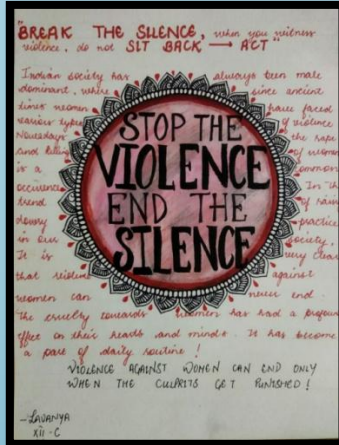 "BREAK THE SILENCE, when you witness
violence, do not SIT BACK → ACT"
Indian society has always been male
dominant, where since ancient
times women have faced
various types of violence
Nowadays the rape
and killing of women
is a common
occurence. In th
trend of
dowry practice
in our society.
It is very clear
that violence against
women can never end.
The cruelty towards women has had a profound
effect on their hearts and minds. It has become
a part of daily routine!
STOP THE
VIOLENCE
END THE
SILENCE
VIOLENCE AGAINST WOMEN CAN END ONLY
WHEN THE CULPRITS GET PUNISHED!
-LAVANYA
XII-C